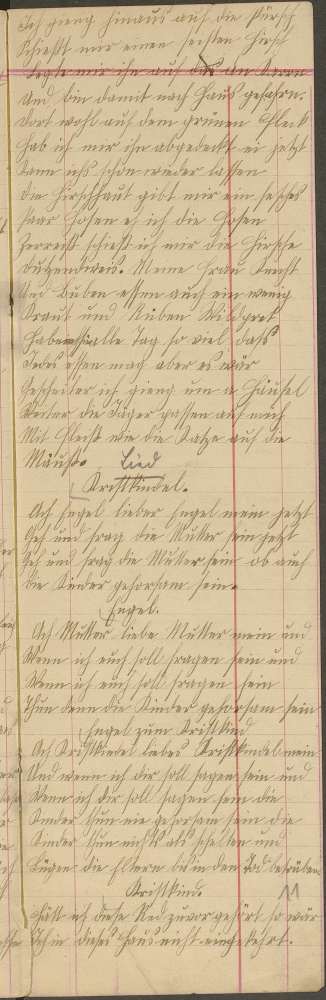 Ich gieng hinaus auf die Pürsch
Schießt mir einen feisten Hirsch
legte mir ihn auf an Karrn
Und bin damit nach Haus gefahrn.
Dort wohl auf dem grünen Fleck
hab ich mir ihn abgedeckt ei jetzt
kann ichs schon wieder lassen
Die Hirschhaut gibt mir ein
paar Hosen eh ich die Hosen
Zerreiß schieß ich mir die Hirsche
dutzendweis. Meine Frau Knecht
Und Buben essen auch ein wenig
Kraut und Rüben Wildpret
haben alle Tag so viel daß
Jedes essen mag aber es wär
Gescheiter ich gieng um a Häusel
Weiter die Jäger passen auf mich
Mit Fleiß wie die Katze auf die
Mäuß. Lied
Kristkindel.
Ach Engel lieber Engel mein jetzt
Geh und frag die Mutter fein jetzt
Geh und frag die Mutter fein ob auch
die Kinder gehorsam sein.
Engel.
Ach Mutter liebe Mutter mein und
Wenn ich euch soll fragen fein und
Wenn ich euch soll fragen fein
Thun denn die Kinder gehorsam sein
Engel zum Kristkind
Ach Kristkindel liebes Kristkindel mein
Und wenn ich dir soll sagen fein und
Wenn ich dir soll sagen fein die
Kinder thun nie gehorsam sein die
Kinder thun nichts als schelten und
Lügen die Eltern bis in den Tod betrüben
Kristkind.
Hätt ich diese Red zuvor gehört so wär
Ich in dieses Haus nicht eingekehrt.